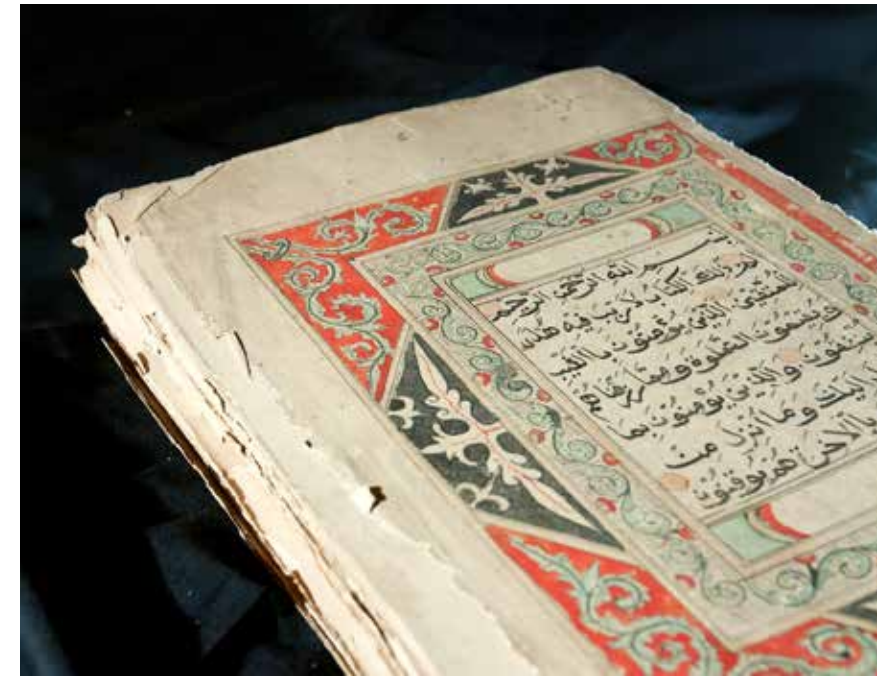 بسم الله الرحمن الرحيم
ذلك الكتاب لا ريب فيه هدى
للمتقين الذين يؤمنون بالغيب
ويقيمون الصلوة ومما رزقناهم
ينفقون والذين يؤمنون بما
اليك وما انزل من
بالاخرة هم يوقنون